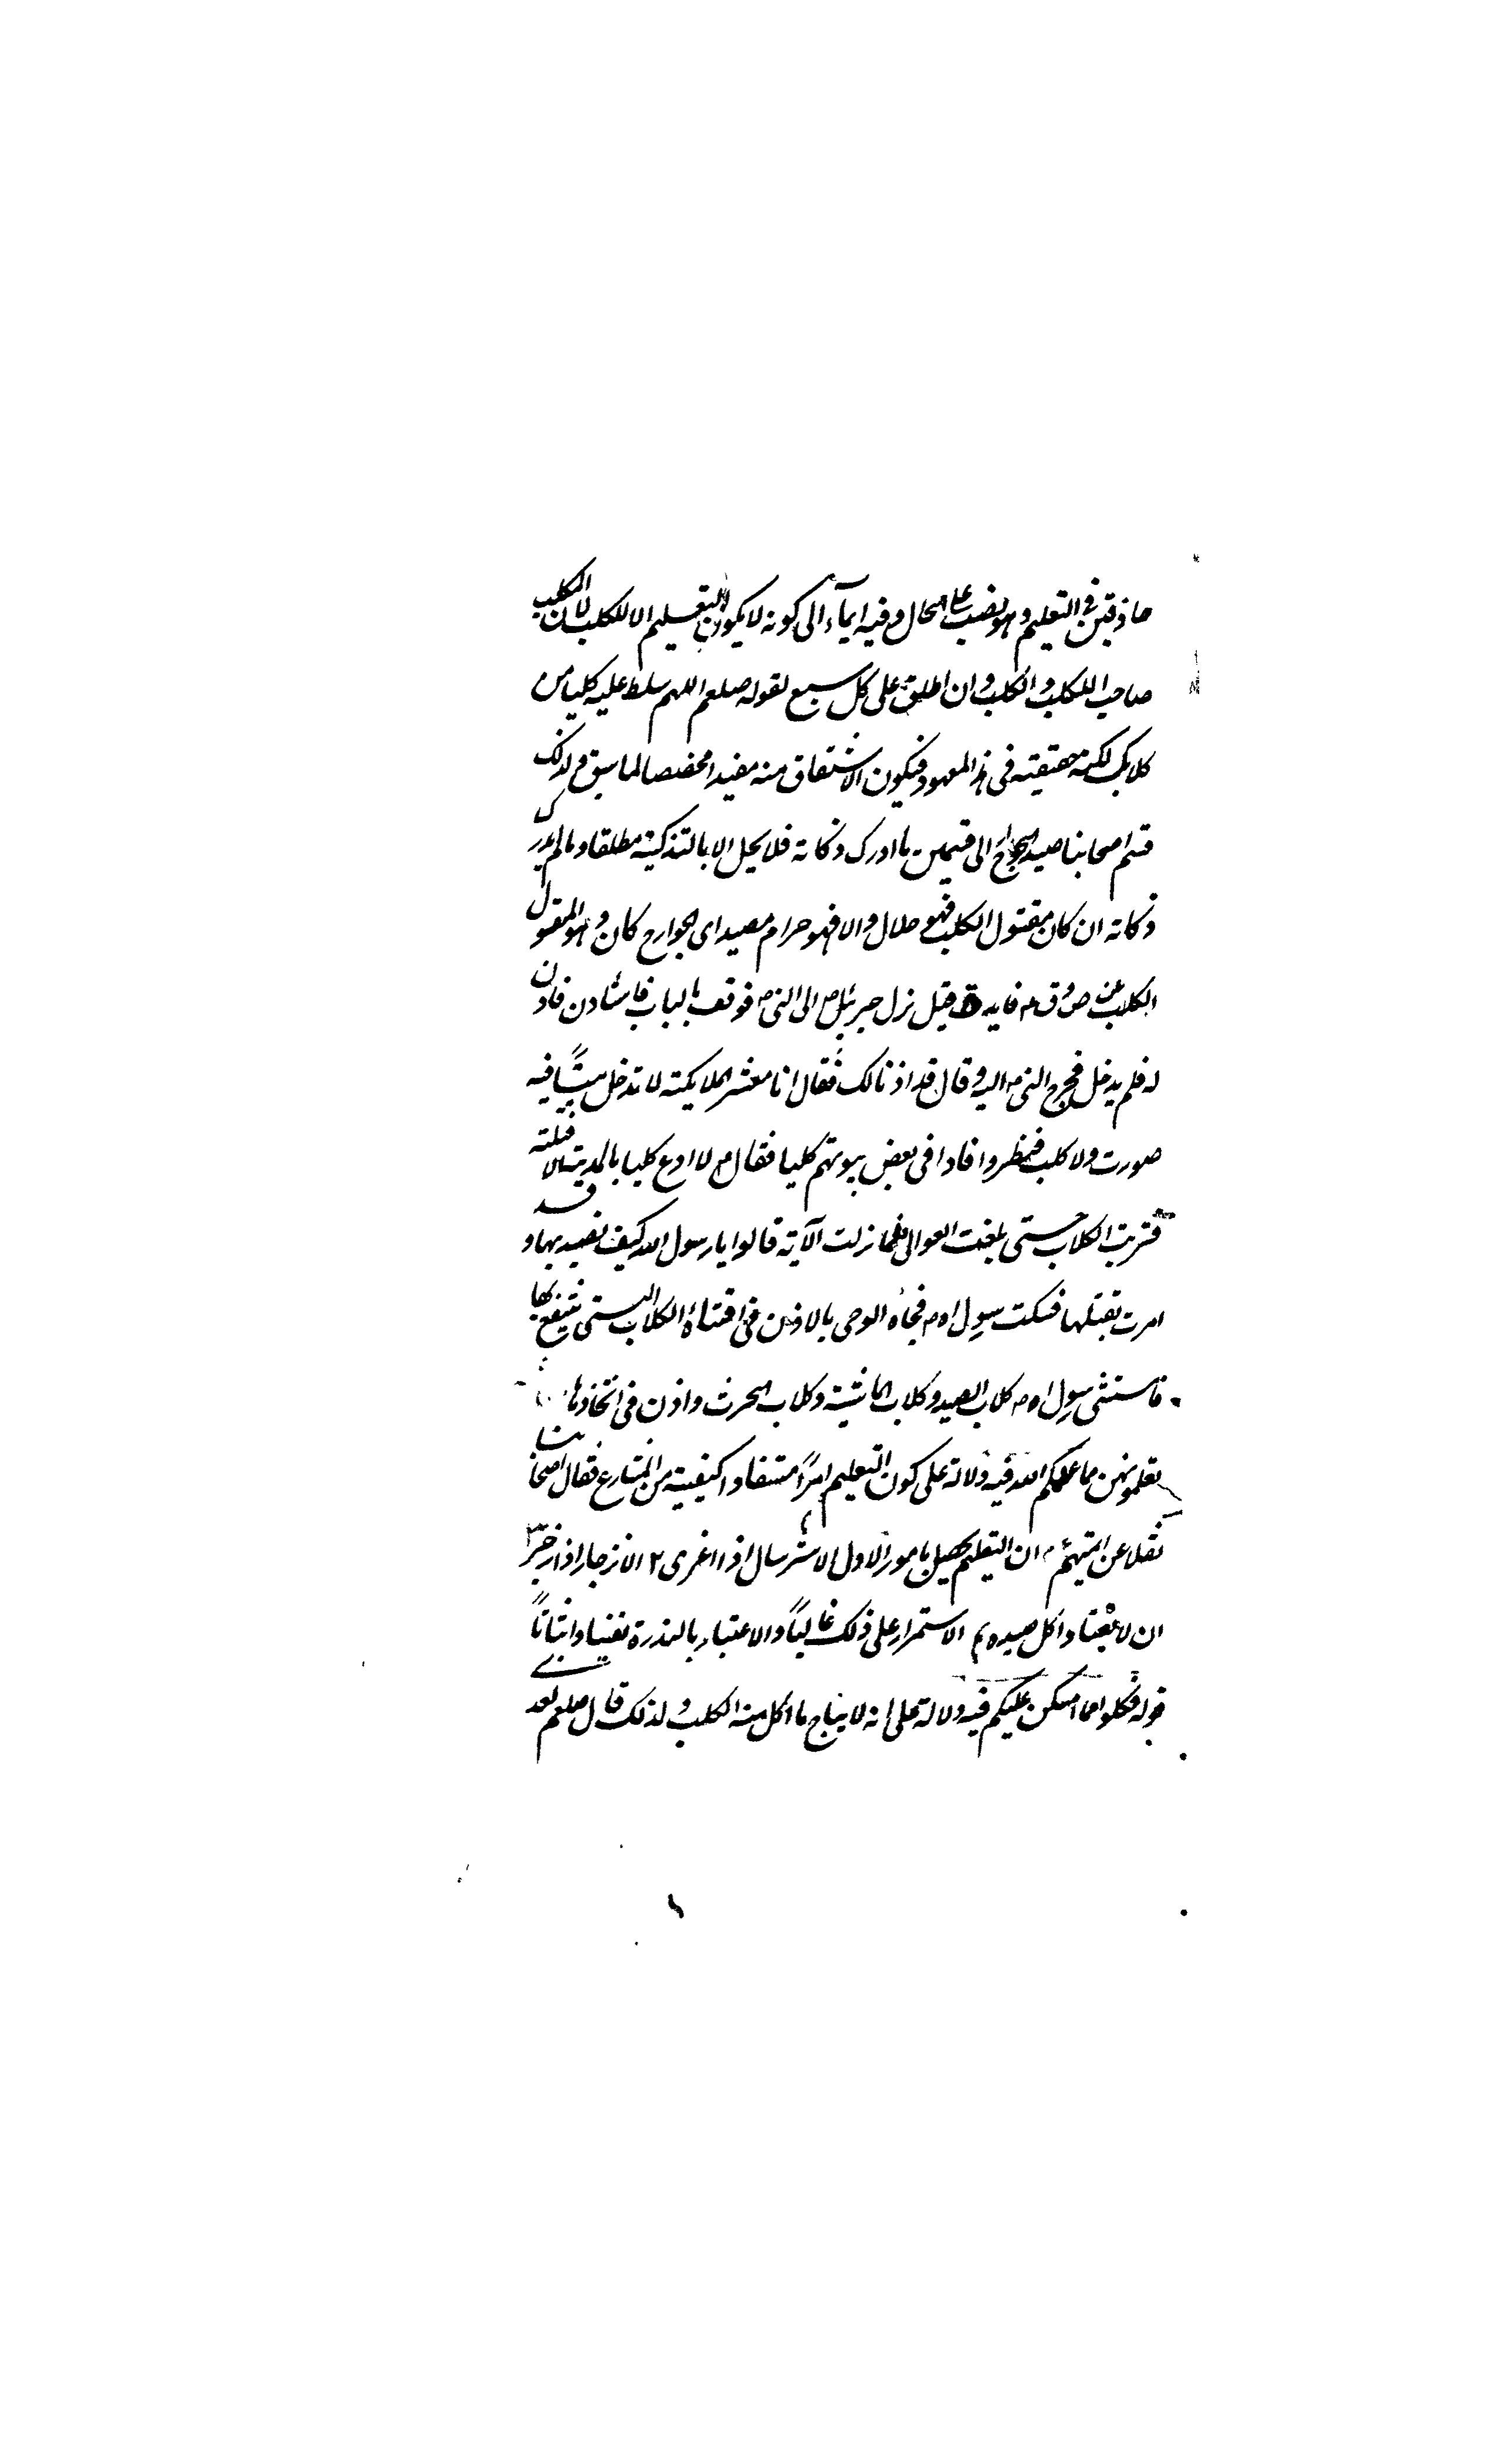 حاذقين في التعليم وهو نصب على الحال وفيه ايماء الى كونه لا يكون التعليم الا للكلب لان المكلب
صاحب الكلب والكلب وان اطلق على كل سبع لقوله صلعم اللهم سلط عليه كلبا من
كلابك لكنه حقيقته في هذا المعهود فيكون الاشتقاق منه مفيدا مخصصا لما سبق ولذلك
قسم اصحابنا صيد الجوارح الى قسمين ما ادرك ذكاته فلا يحل الا بالتذكية مطلقا وما لم يدرك
ذكاته ان كان مقتول الكلب فهو حلال والا فهو حرام مصيد اى الجوارح كان وهو المنقول
قيل نزل جبرئيل الى النبي م فوقف بالباب فاستأذن فاذن
له فلم يدخل فخرج النبي م اليه وقال قد اذنا لك فقال انا معشر الملايكة لا ندخل بيتا فيه
صورت ولا كلب فنظروا فاذا في بعض بيوتهم كلبا فقال م لا ادع كلبا بالمدينة الا قتلته
فهربت الكلاب حتى بلغت العوالي فلما نزلت الآية قالوا يا رسول الله كيف نصيد بها وقد
امرت بقتلها فسكت رسول الله م فجاءه الوحي بالاذن في اقتناء الكلاب التي ينتفع بها
فاستثنى رسول الله م كلاب الصيد وكلاب الماشية وكلاب الحرث واذن في اتخاذها
تعلمونهن مما علمكم الله فيه دلالة على كون التعليم امرا مستفادا كيفيته من الشارع فقال اصحابنا
نقلا عن ائمتهم ان التعليم يحصل بامور الاول الاسترسال اذا اغرى ٢ الانزجار اذا زجر ٣
ان لا يعتاد اكل صيده ٤ الاستمرار على ذلك غالبا والاعتبار بالندرة نفيا واثباتا
قوله فكلوا مما امسكن عليكم فيه دلالة على انه لا يباح ما اكل منه الكلب ولذلك قال صلعم لعدي